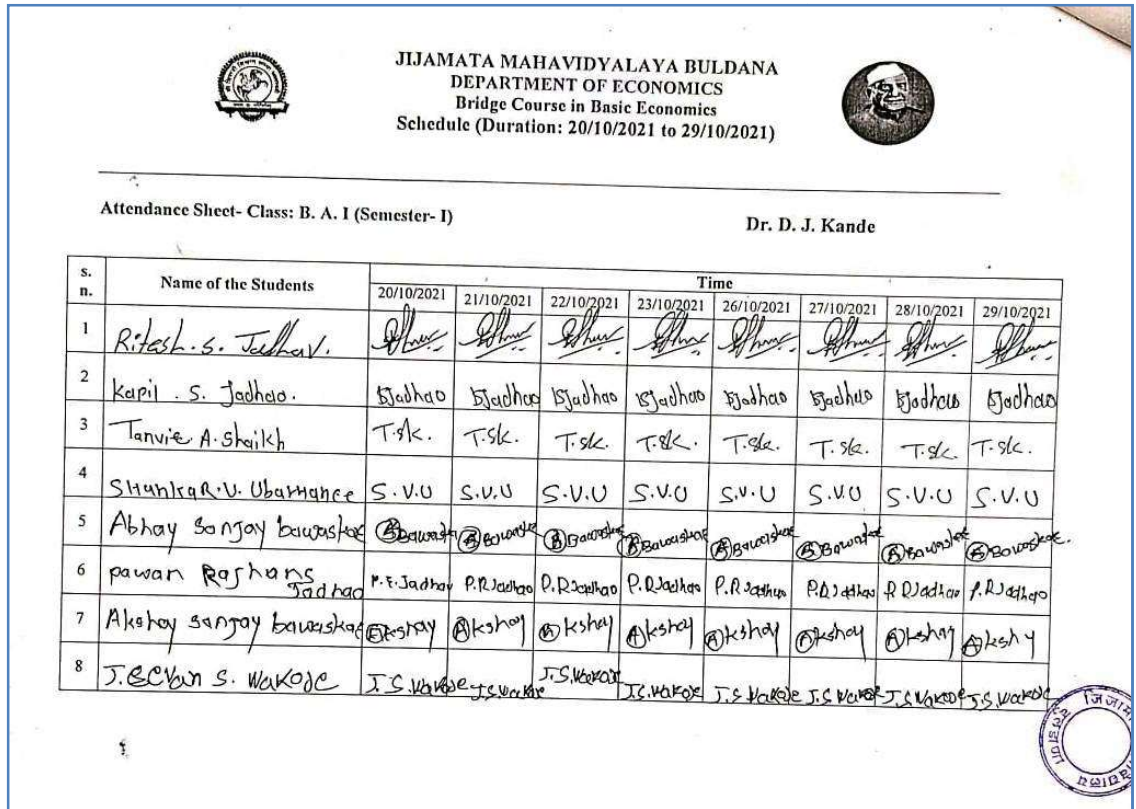 JIJAMATA MAHAVIDYALAYA BULDANA
DEPARTMENT OF ECONOMICS
Bridge Course in Basic Economics
Schedule (Duration: 20/10/2021 to 29/10/2021)
Attendance Sheet- Class: B. A. I (Semester- I) Dr. D. J. Kande
s. n. Name of the Students Time
20/10/2021 21/10/2021 22/10/2021 23/10/2021 26/10/2021 27/10/2021 28/10/2021 29/10/2021
1 Ritesh. S. Jadhav.
2 Kapil . S. Jadhao. KJadhao KJadhao KJadhao KJadhao KJadhao KJadhao KJadhao KJadhao
3 Tanvir A. Shaikh T.sk. T.sk. T.sk. T.sk. T.sk. T.sk. T.sk. T.sk.
4 SHankaR.U. S.V.U S.V.U S.V.U S.V.U S.V.U S.V.U S.V.U S.V.U
5 Abhay Sanjay bawaskar Bawaskar Bawaskar Bawaskar Bawaskar Bawaskar Bawaskar Bawaskar Bawaskar.
6 pawan Jadhao P.R.Jadhao P.RJadhao P.RJadhao P.RJadhao P.RJadhao P.RJadhao P.RJadhao
7 Akshay Sanjay bawaskar Akshay Akshay Akshay Akshay Akshay Akshay Akshay Akshy
8 S. Wakode J.S.Wakode J.S.Wakode J.S.Wakode J.S.Wakode J.S.Wakode J.S.Wakode J.S.Wakode J.S.Wakode